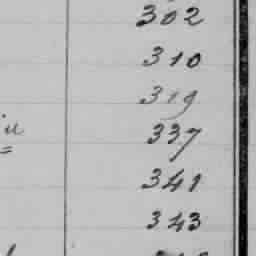 302
310
319
337
341
343